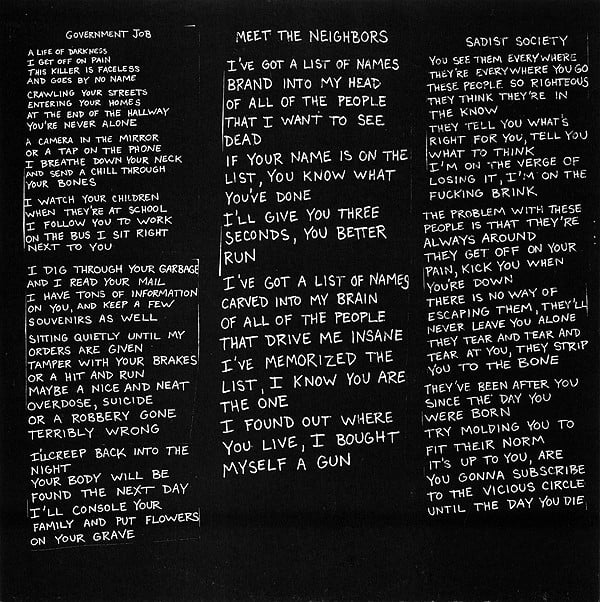 GOVERNMENT JOB
A LIFE OF DARKNESS
I GET OFF ON PAIN
THIS KILLER IS FACELESS
AND GOES BY NO NAME
CRAWLING YOUR STREETS
ENTERING YOUR HOMES
AT THE END OF THE HALLWAY
YOU'RE NEVER ALONE
A CAMERA IN THE MIRROR
OR A TAP ON THE PHONE
I BREATHE DOWN YOUR NECK
AND SEND A CHILL THROUGH
YOUR BONES
I WATCH YOUR CHILDREN
WHEN THEY'RE AT SCHOOL
I FOLLOW YOU TO WORK
ON THE BUS I SIT RIGHT
NEXT TO YOU
I DIG THROUGH YOUR GARBAGE
AND I READ YOUR MAIL
I HAVE TONS OF INFORMATION
ON YOU, AND KEEP A FEW
SOUVENIRS AS WELL
SITTING QUIETLY UNTIL MY
ORDERS ARE GIVEN
TAMPER WITH YOUR BRAKES
OR A HIT AND RUN
MAYBE A NICE AND NEAT
OVERDOSE, SUICIDE
OR A ROBBERY GONE
TERRIBLY WRONG
I'LL CREEP BACK INTO THE
NIGHT
YOUR BODY WILL BE
FOUND THE NEXT DAY
I'LL CONSOLE YOUR
FAMILY AND PUT FLOWERS
ON YOUR GRAVE
MEET THE NEIGHBORS
I'VE GOT A LIST OF NAMES
BRAND INTO MY HEAD
OF ALL OF THE PEOPLE
THAT I WANT TO SEE
DEAD
IF YOUR NAME IS ON THE
LIST, YOU KNOW WHAT
YOU'VE DONE
I'LL GIVE YOU THREE
SECONDS, YOU BETTER
RUN
I'VE GOT A LIST OF NAMES
CARVED INTO MY BRAIN
OF ALL OF THE PEOPLE
THAT DRIVE ME INSANE
I'VE MEMORIZED THE
LIST, I KNOW YOU ARE
THE ONE
I FOUND OUT WHERE
YOU LIVE, I BOUGHT
MYSELF A GUN
SADIST SOCIETY
YOU SEE THEM EVERYWHERE
THEY'RE EVERYWHERE YOU GO
THESE PEOPLE SO RIGHTEOUS
THEY THINK THEY'RE IN
THE KNOW
THEY TELL YOU WHAT'S
RIGHT FOR YOU, TELL YOU
WHAT TO THINK
I'M ON THE VERGE OF
LOSING IT, I'M ON THE
FUCKING BRINK
THE PROBLEM WITH THESE
PEOPLE IS THAT THEY'RE
ALWAYS AROUND
THEY GET OFF ON YOUR
PAIN, KICK YOU WHEN
YOU'RE DOWN
THERE IS NO WAY OF
ESCAPING THEM, THEY'LL
NEVER LEAVE YOU ALONE
THEY TEAR AND TEAR AND
TEAR AT YOU, THEY STRIP
YOU TO THE BONE
THEY'VE BEEN AFTER YOU
SINCE THE DAY YOU
WERE BORN
TRY MOLDING YOU TO
FIT THEIR NORM
IT'S UP TO YOU, ARE
YOU GONNA SUBSCRIBE
TO THE VICIOUS CIRCLE
UNTIL THE DAY YOU DIE